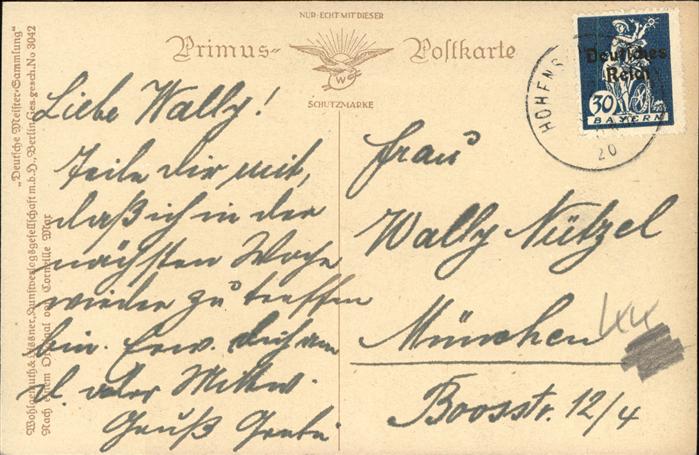 NUR ECHT MIT DIESER
Primus- Postkarte
W
SCHUTZMARKE
Deutsches
Reich
30
BAYERN
HOHENS
20
Liebe Wally!
Teile dir mit,
daß ich in der
nächsten Woche
wieder zu treffen
bin. Erw. dich am
D. oder Mittw.
Gruß Grete
Frau
Wally Nützel
München
Boosstr. 12/4
"Deutsche Meister-Sammlung"
Wohlgemuth & Lissner, Kunstverlagsgesellschaft m.b.H., Berlin. Ges. gesch. No 3042
Nach einem Original von Corneille Max